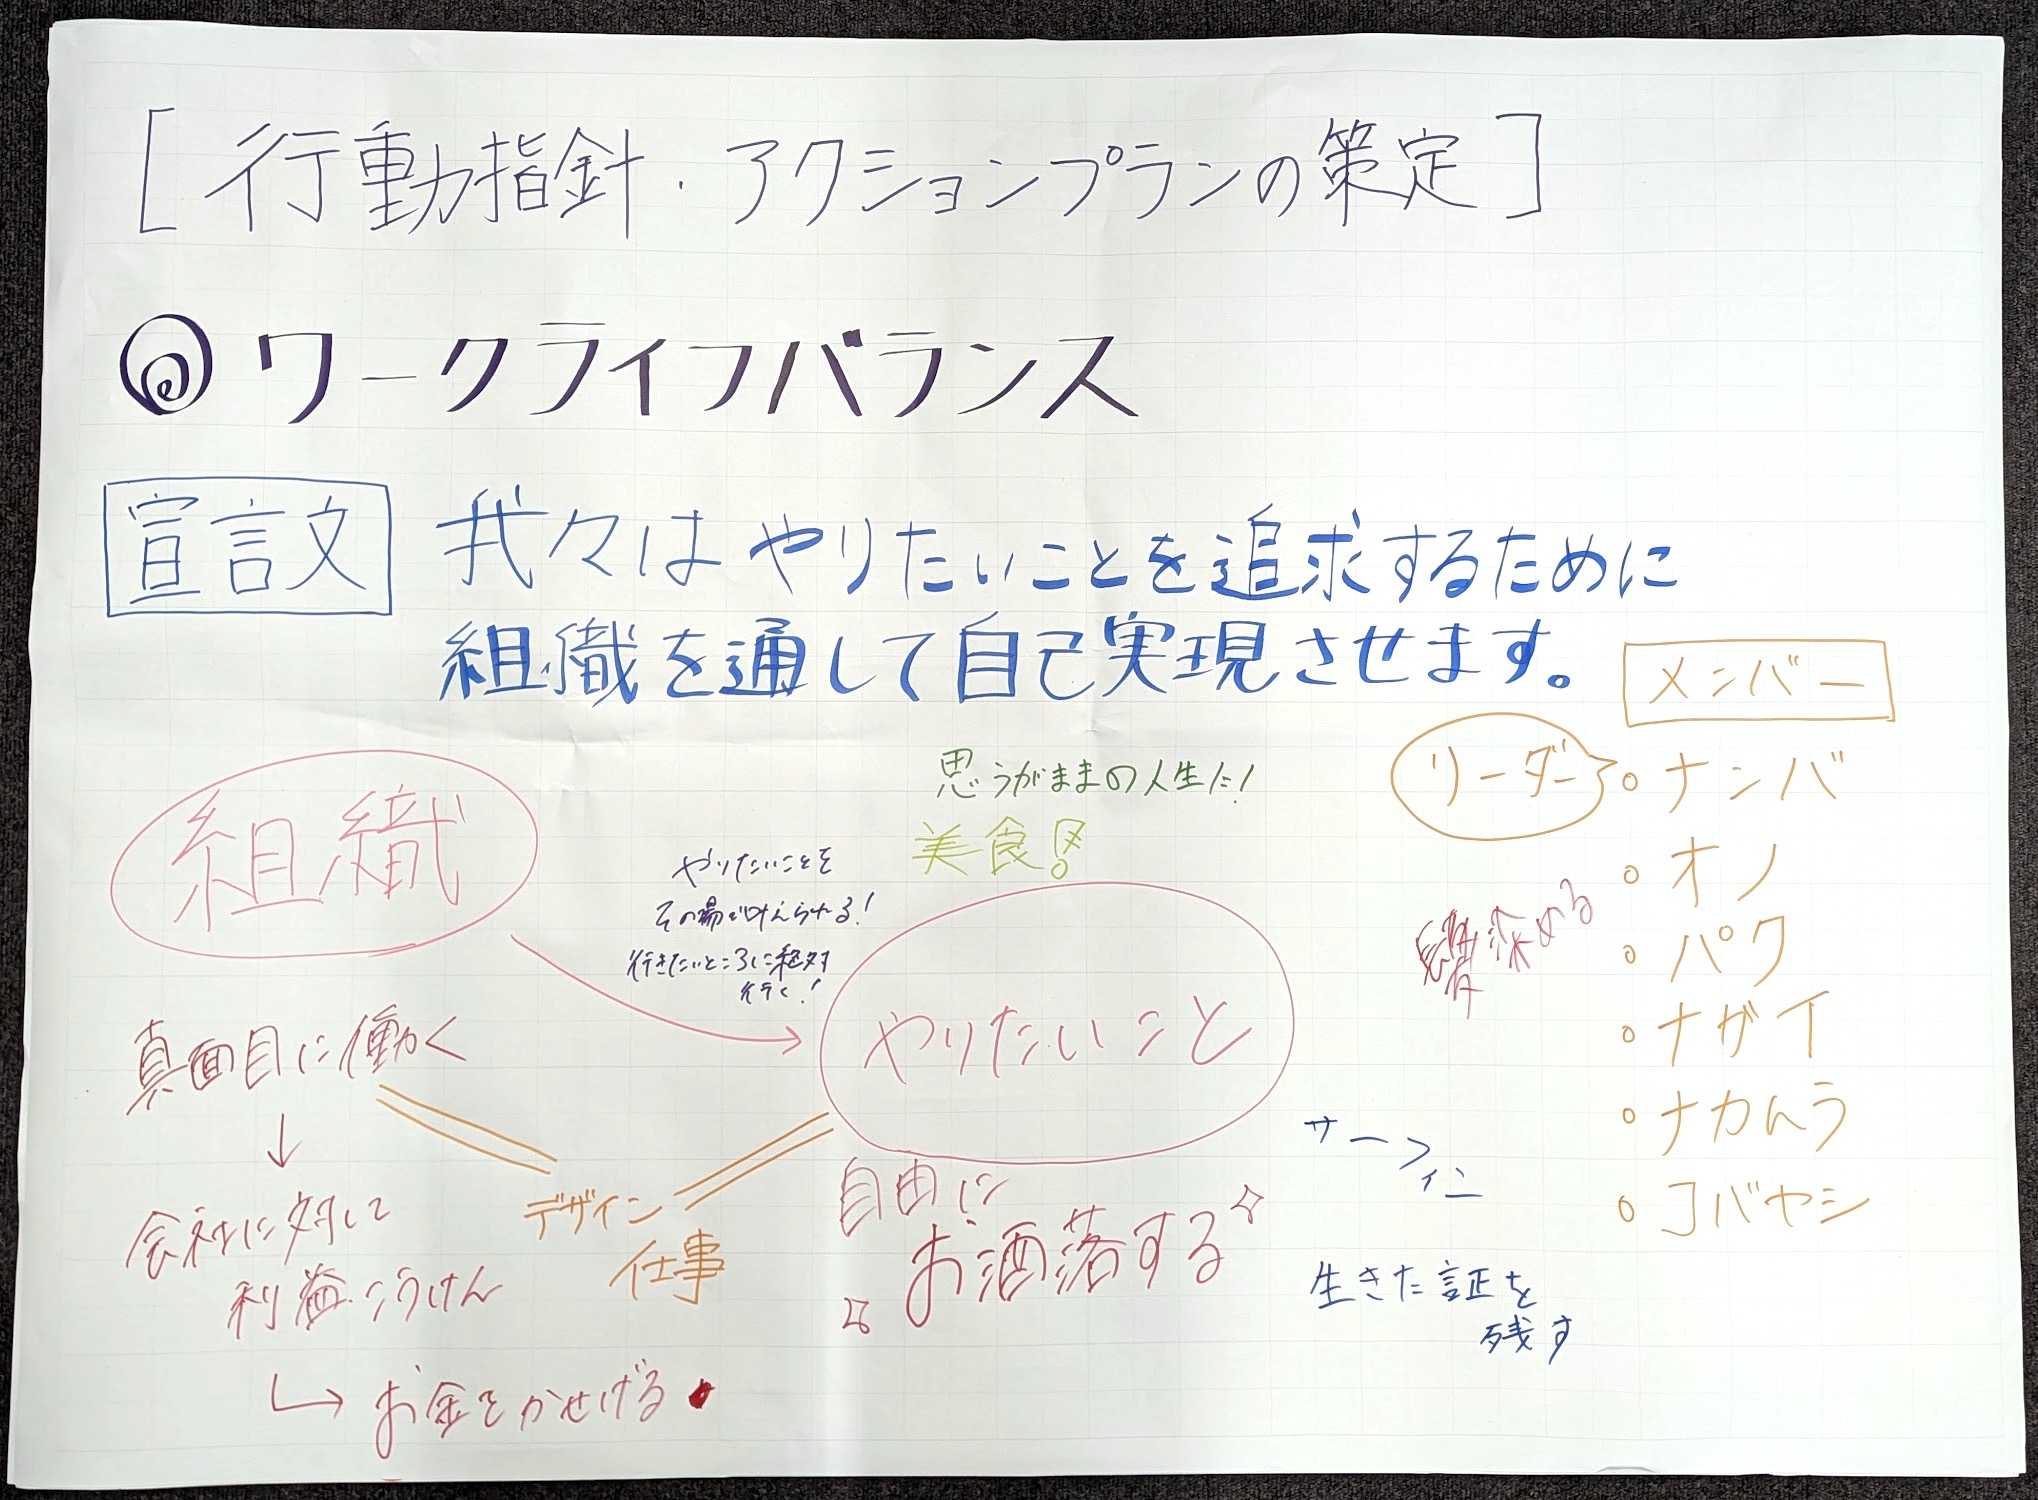 [行動指針・アクションプランの策定]
ワークライフバランス
宣言文
我々はやりたいことを追求するために
組織を通して自己実現させます。
メンバー
リーダー
ナンバ
オノ
パク
ナガイ
ナカムラ
コバヤシ
組織
思うがままの人生だ!
美食
やりたいことを
その場で叶えられる!
行きたいところに絶対
行く!
やりたいこと
深める
真面目に働く
↓
会社に対して
利益こうけん
→お金をかせげる
デザイン
仕事
自由に
お洒落する
サーフィン
生きた証を
残す